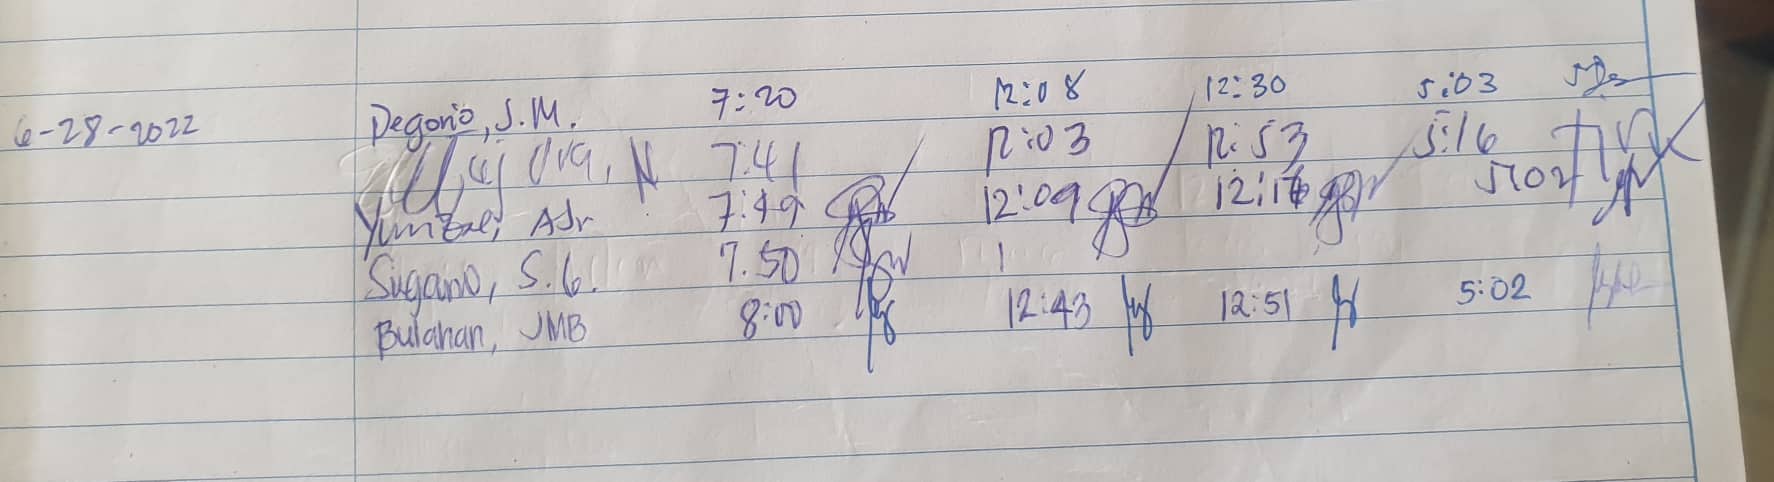 6-28-2022 Degorio, J.M. 7:20 12:08 12:30 5:03
N 7:41 12:03 12:53 5:16
AJr 7:49 12:09 5:02
Sugano, S.G. 7.50
Bulahan, JMB 8:00 12:43 12:51 5:02